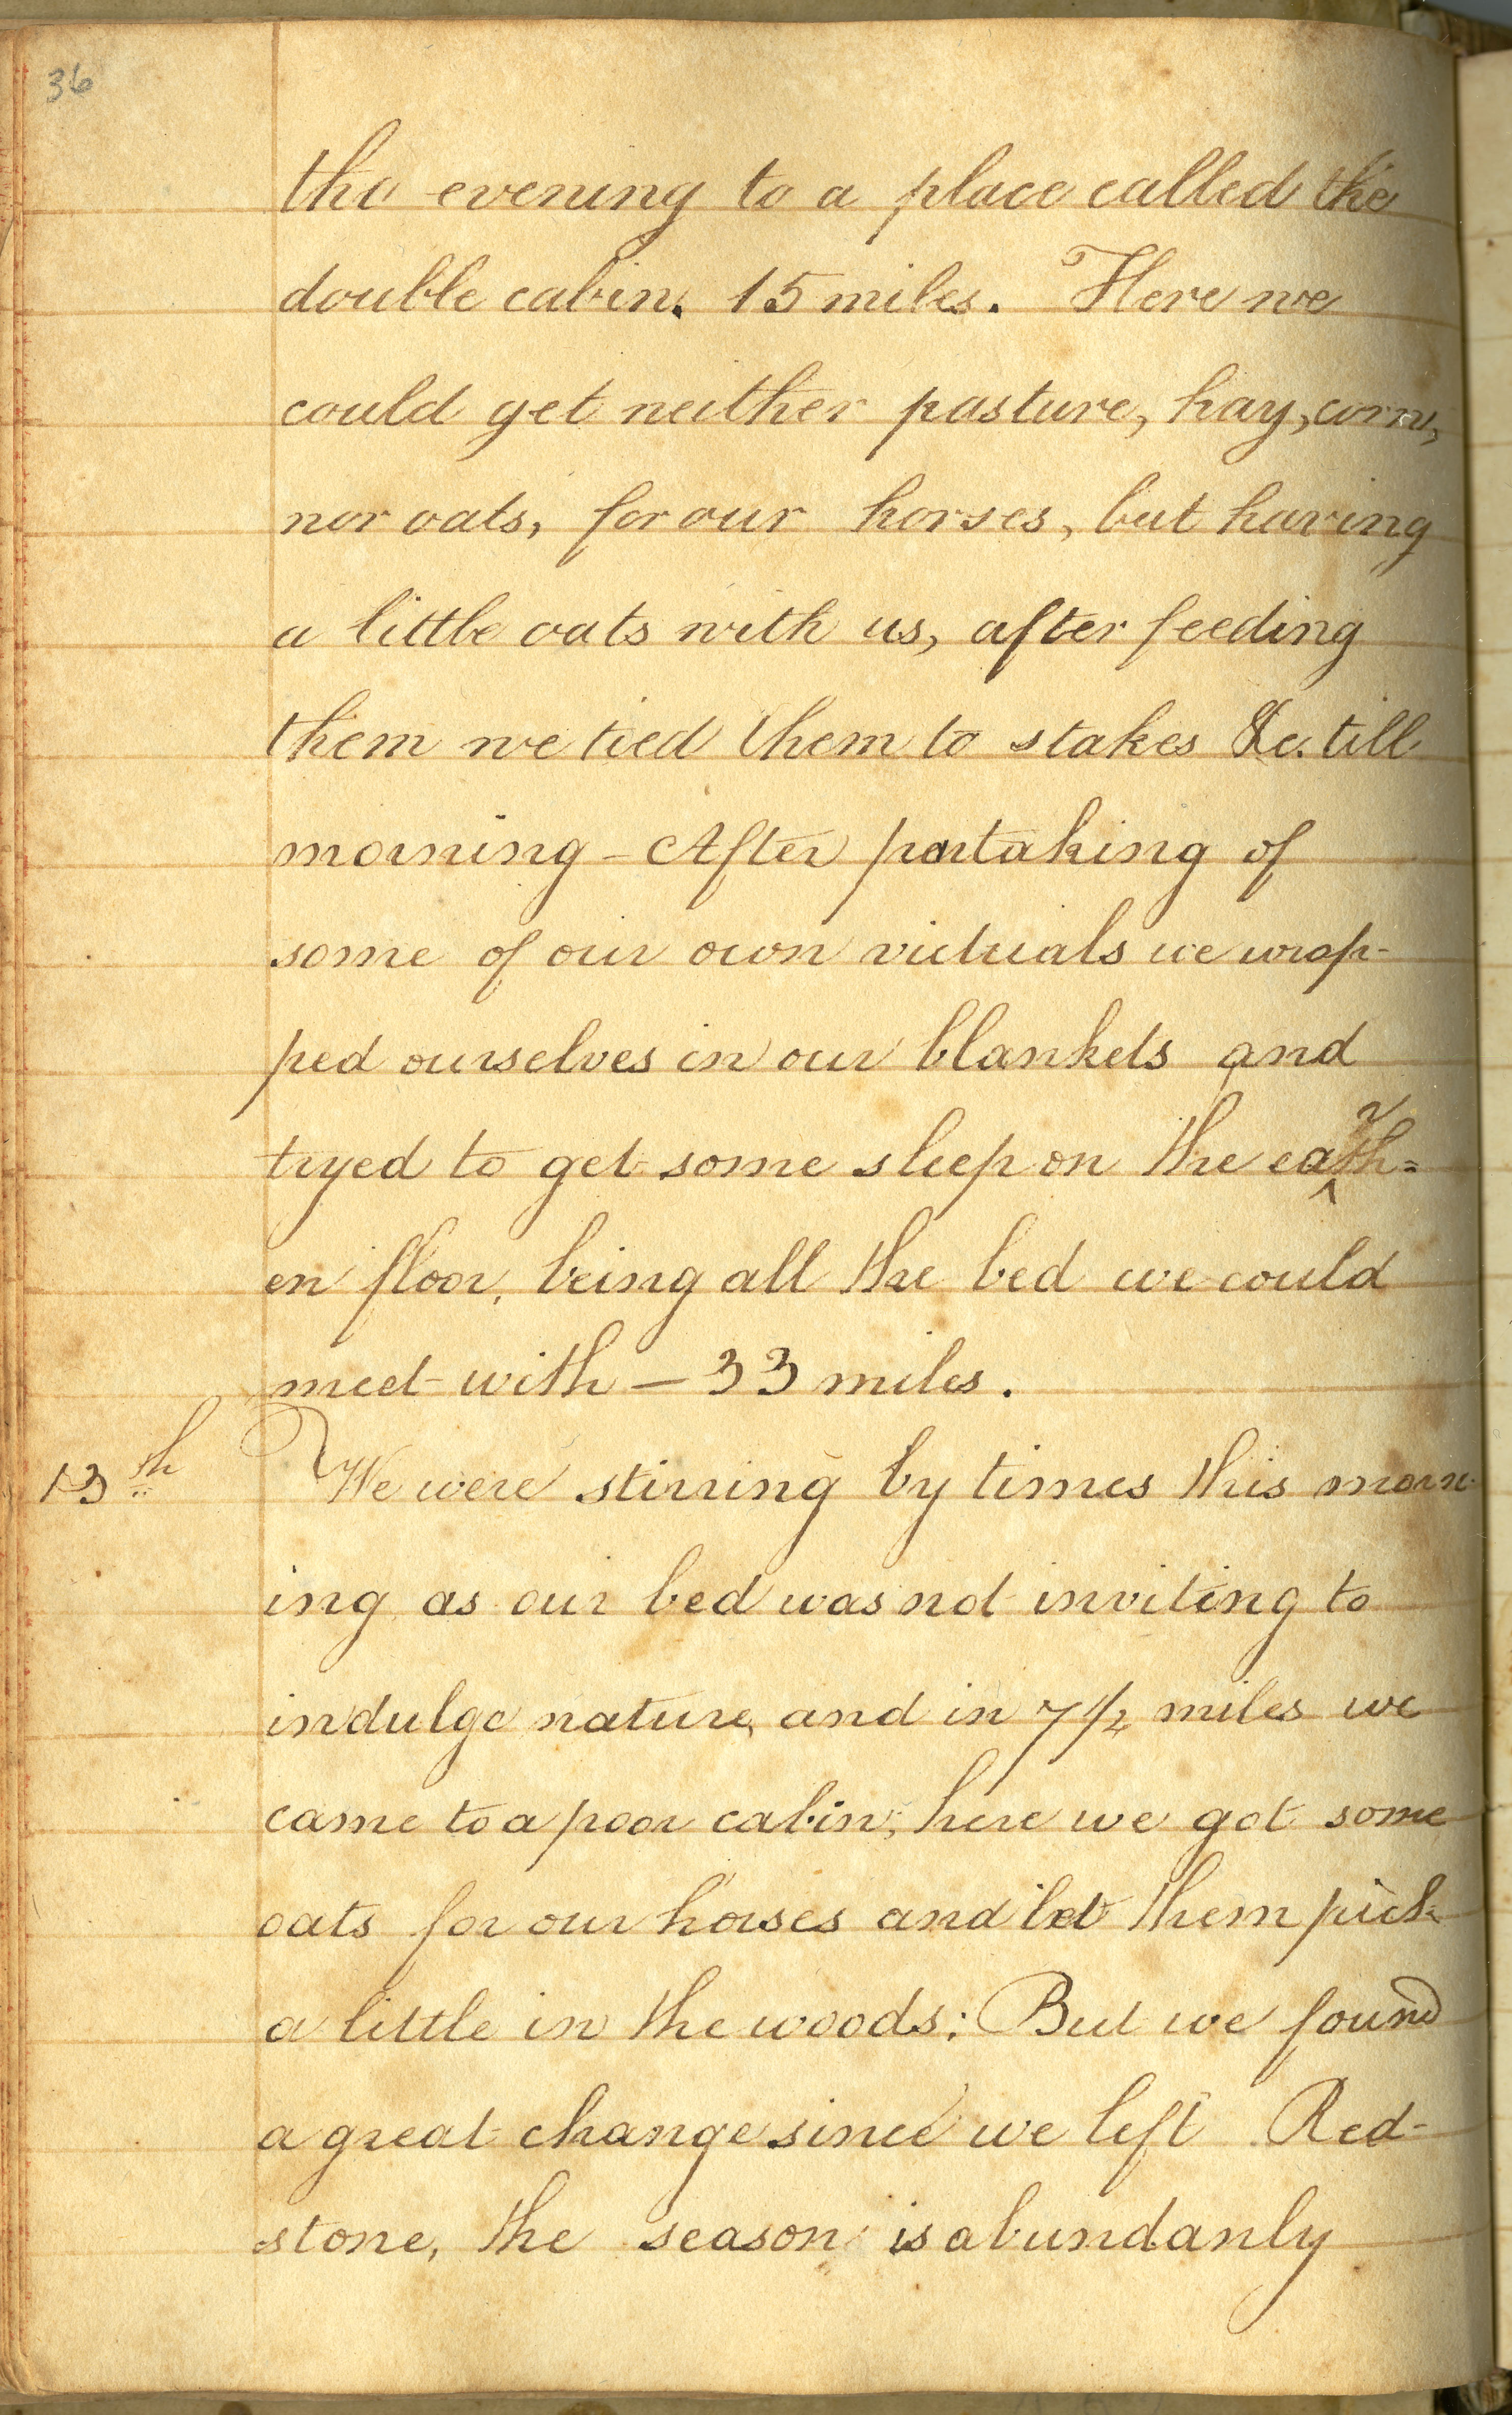 36
the evening to a place called the
double cabin. 15 miles. Here we
could get neither pasture, hay, corn,
nor oats, for our horses, but having
a little oats with us, after feeding
them we tied them to stakes &c. till
morning – After partaking of
some of our own victuals we wrap-
ped ourselves in our blankets and
tryed to get some sleep on the earth=
en floor, being all the bed we could
meet with – 33 miles.
13th We were stirring by times this morn-
ing as our bed was not inviting to
indulge nature, and in 7 1/2 miles we
came to a poor cabin; here we got some
oats for our horses and let them pick
a little in the woods; But we found
a great change since we left Red-
stone, the season is abundanly